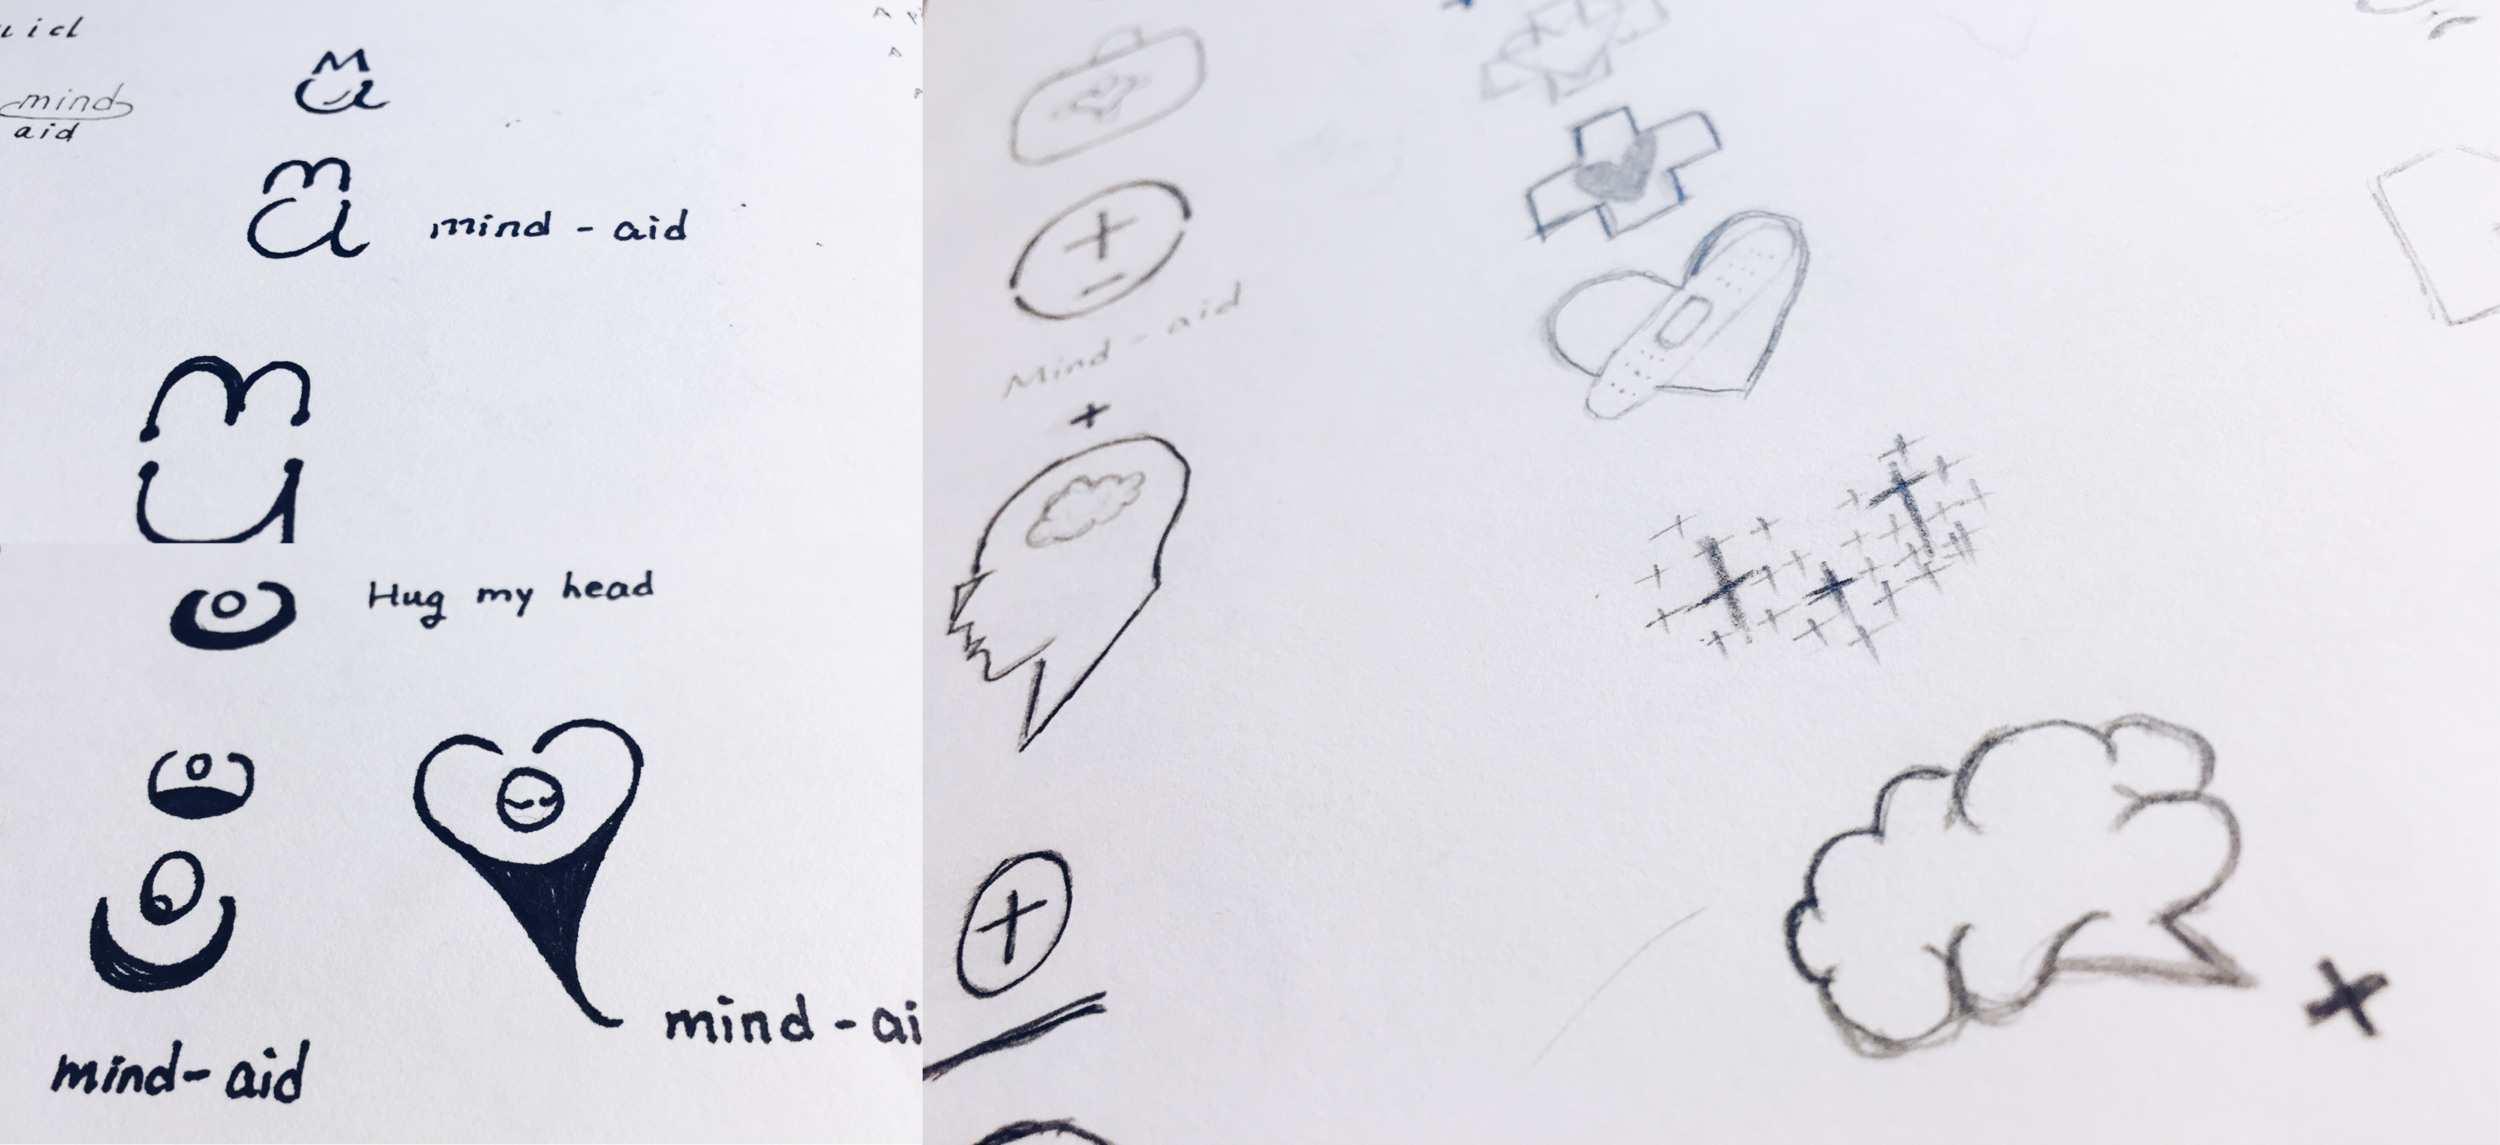 mind
aid
mind - aid
Hug my head
mind - ai
mind - aid
Mind - aid